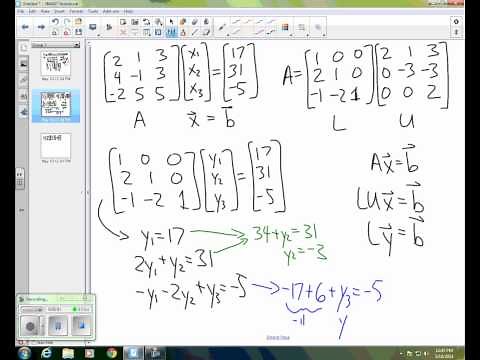 [2 1 3; 4 -1 3; -2 5 5] [x₁; x₂; x₃] = [17; 31; -5]
A x⃗ = b⃗
A = [1 0 0; 2 1 0; -1 -2 1] [2 1 3; 0 -3 -3; 0 0 2]
L U
[1 0 0; 2 1 0; -1 -2 1] [y₁; y₂; y₃] = [17; 31; -5]
Ax⃗ = b⃗
LUx⃗ = b⃗
Ly⃗ = b⃗
y₁ = 17
34 + y₂ = 31
2y₁ + y₂ = 31
y₂ = -3
-y₁ - 2y₂ + y₃ = -5
-17 + 6 + y₃ = -5
-11
y